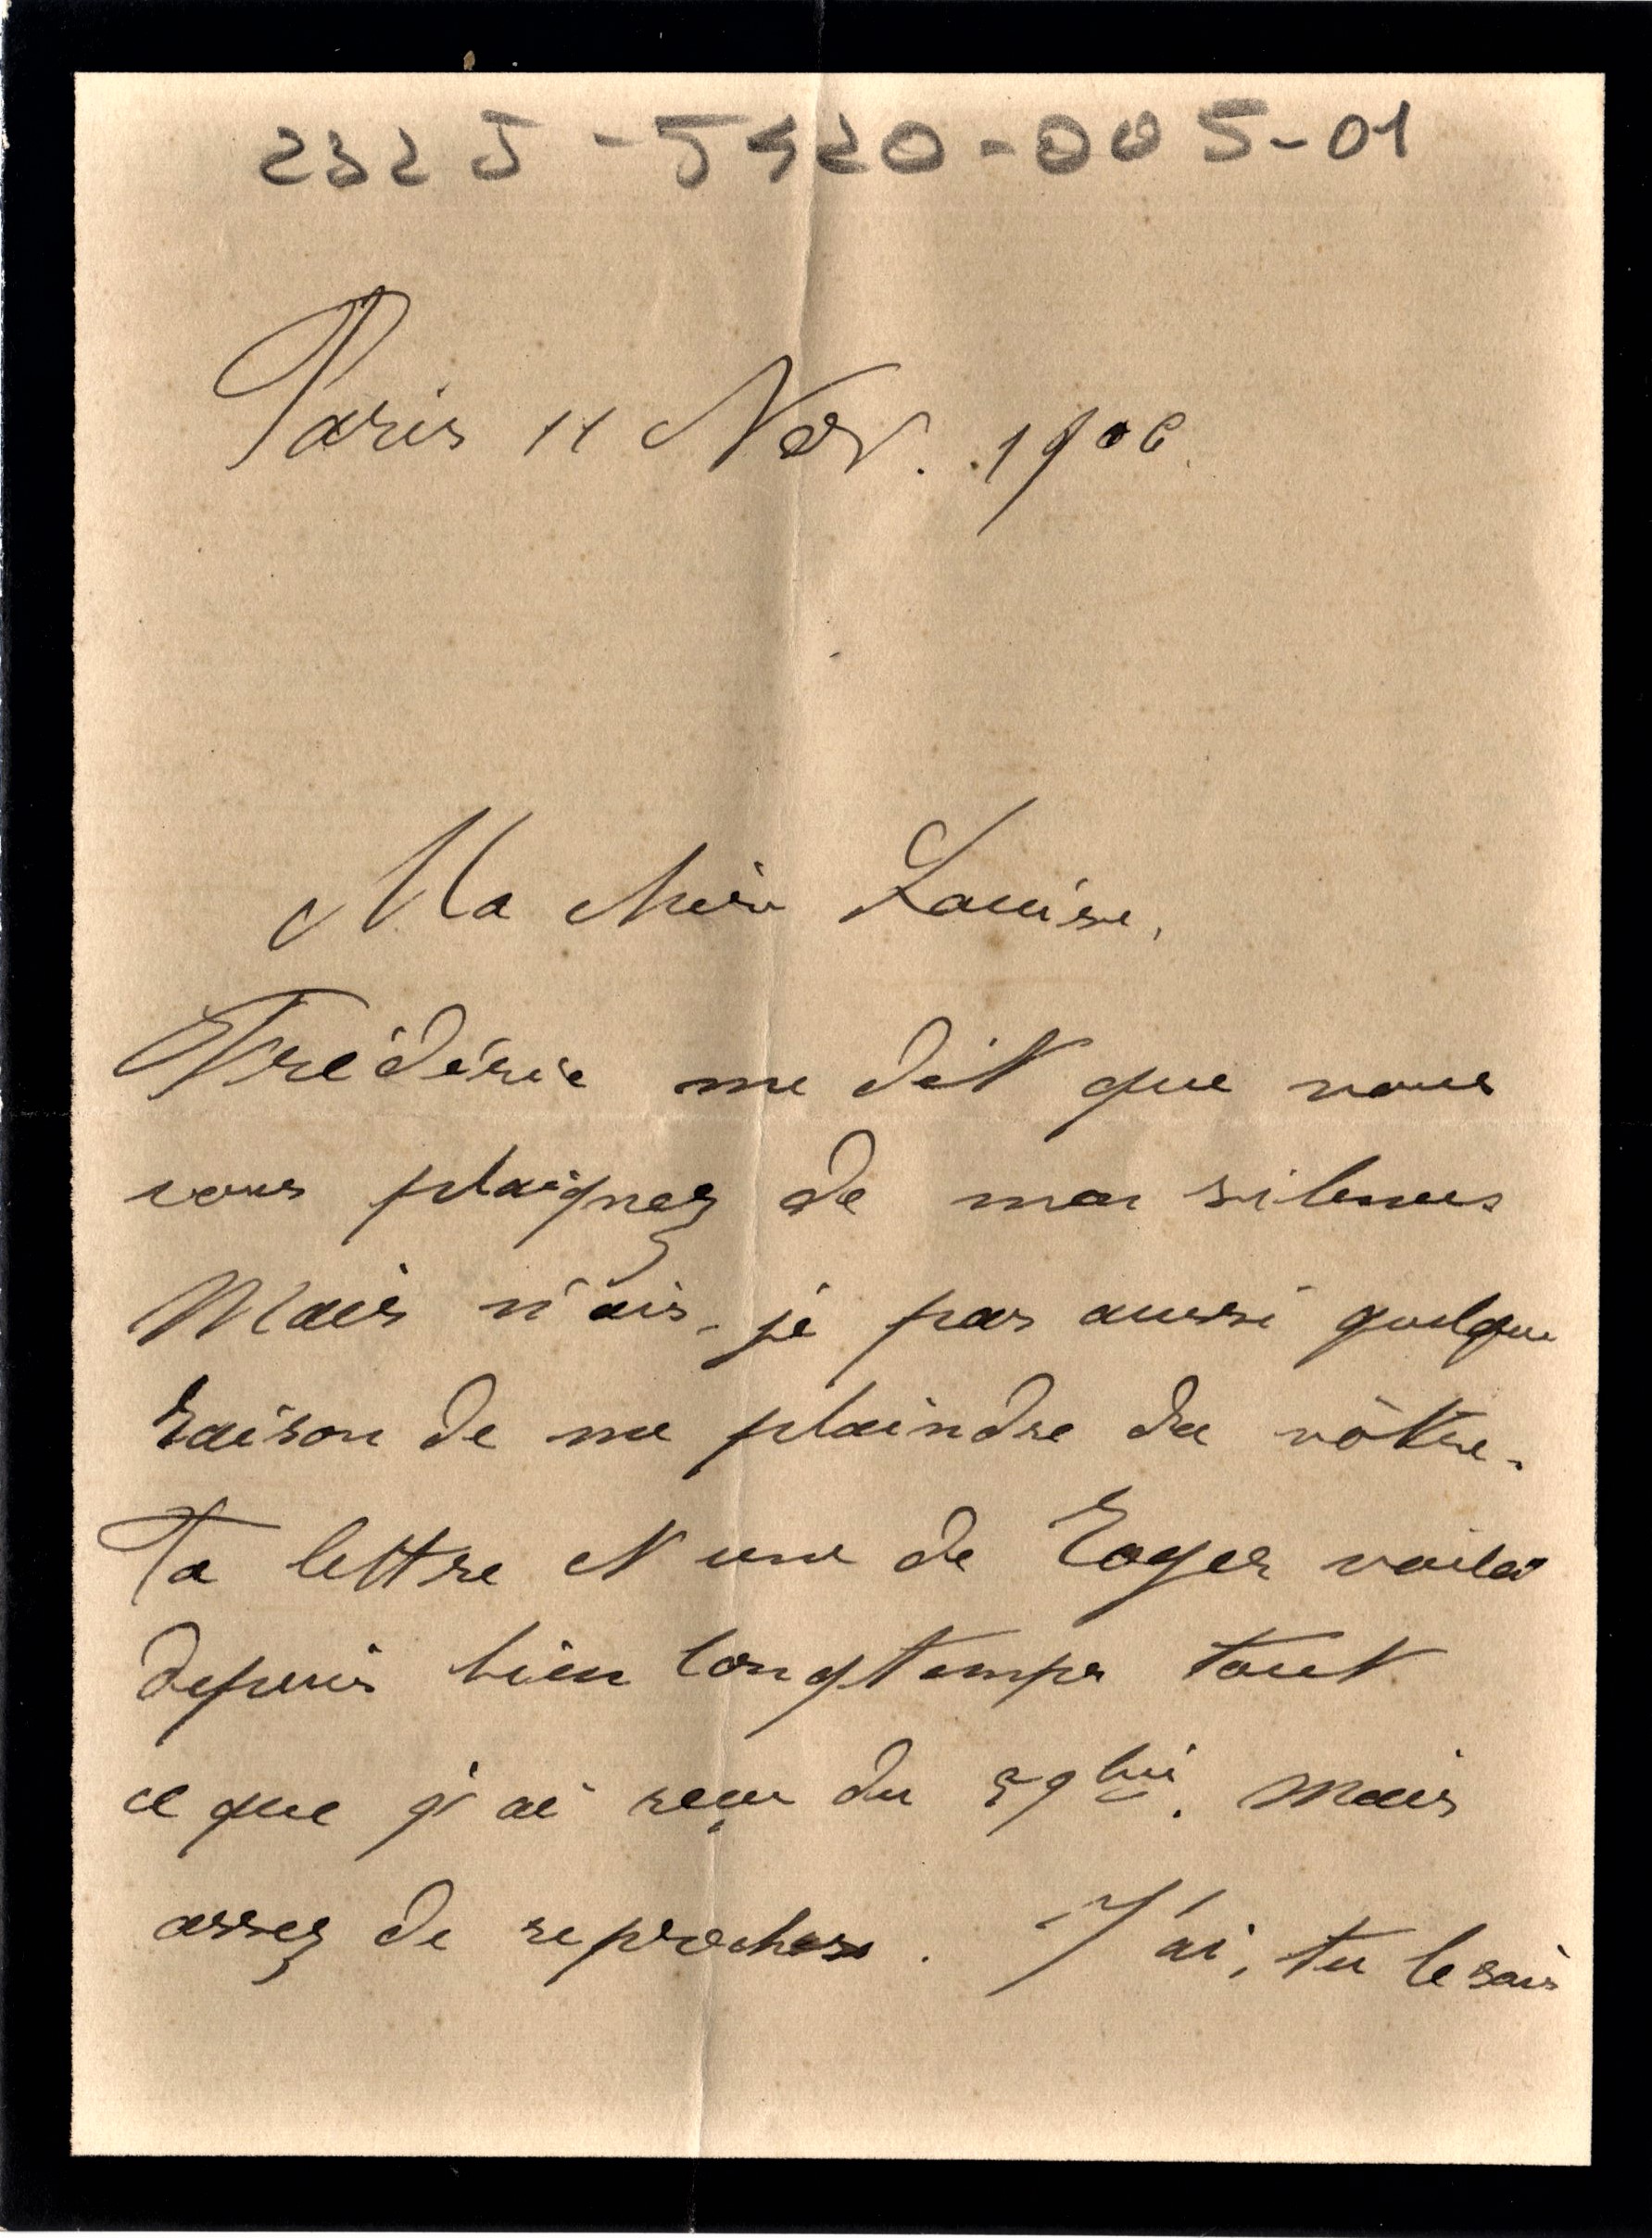 232J-5420-005-01
Paris 11 Nov. 1906.
Ma chère Louise,
Frédéric me dit que vous
vous plaignez de mon silence
Mais n'ais-je pas aussi quelque
raison de me plaindre du vôtre.
Ta lettre et une de Roger voilà
depuis bien longtemps tout
ce que j'ai reçu du Mais
assez de reproches. J'ai, tu le sais